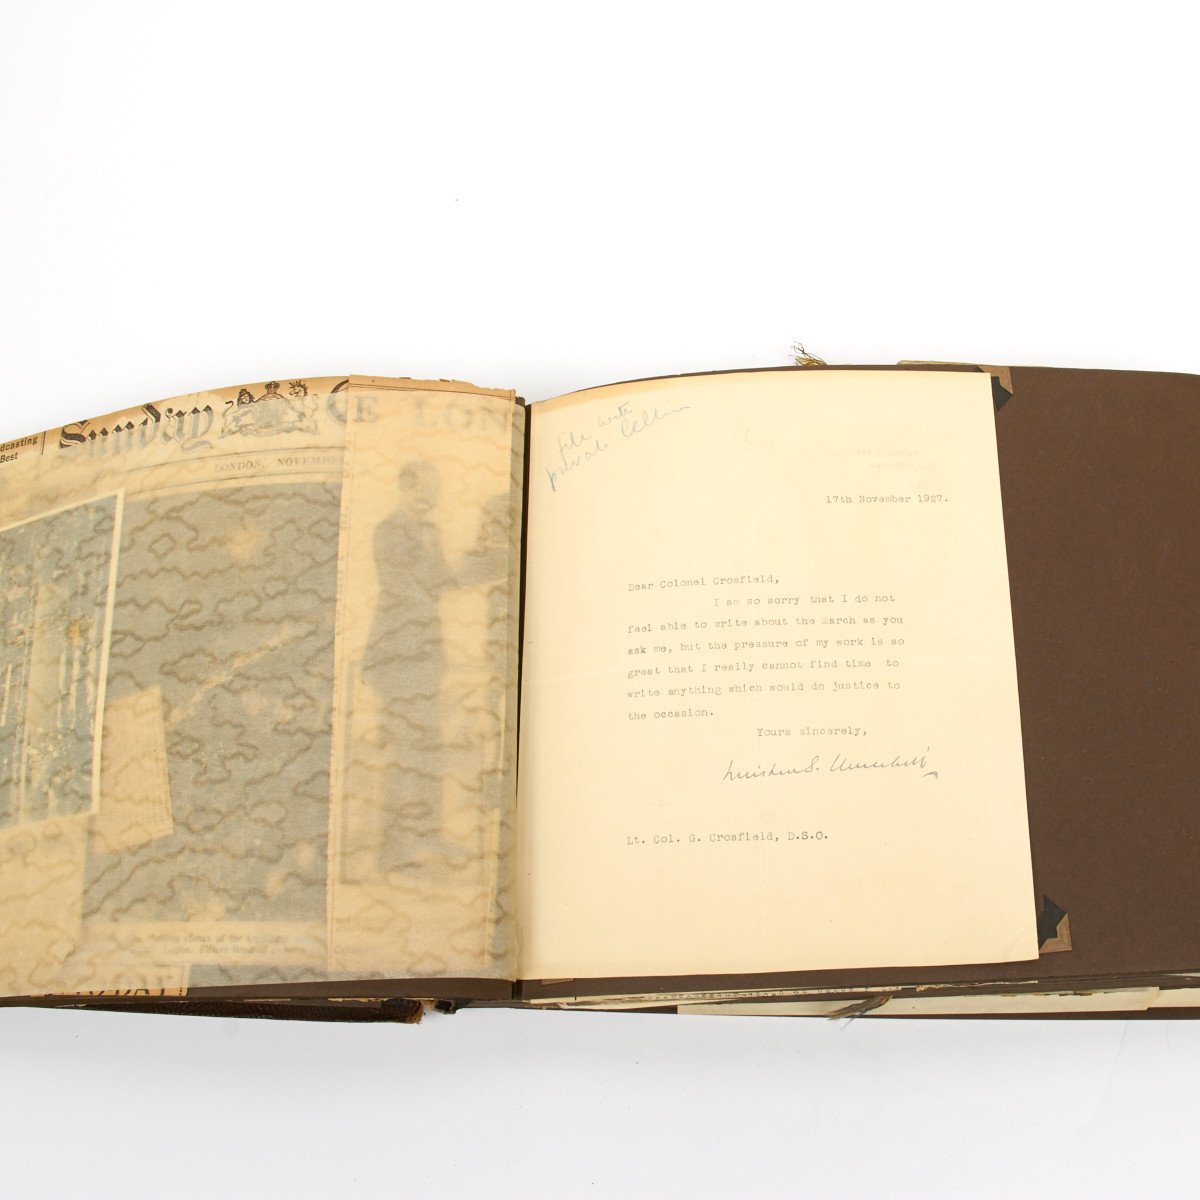 dcasting
Best
Sunday
LONDON, NOVEMBER
climax of the
Legion. Fifteen hundred
file with
private
17th November 1927.
Dear Colonel Crosfield,
I am so sorry that I do not
feel able to write about the March as you
ask me, but the pressure of my work is so
great that I really cannot find time to
write anything which would do justice to
the occasion.
Yours sincerely,
Winston S. Churchill
Lt. Col. G. Crosfield, D.S.O.